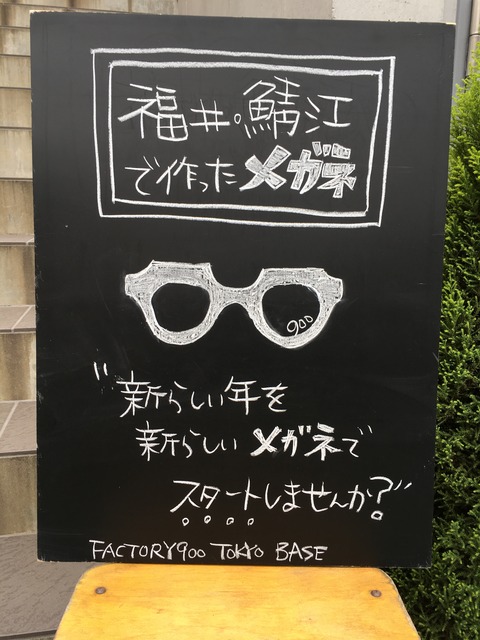 福井・鯖江
で作ったメガネ
900
"新らしい年を
新らしいメガネで
スタートしませんか?"
FACTORY900 TOKYO BASE